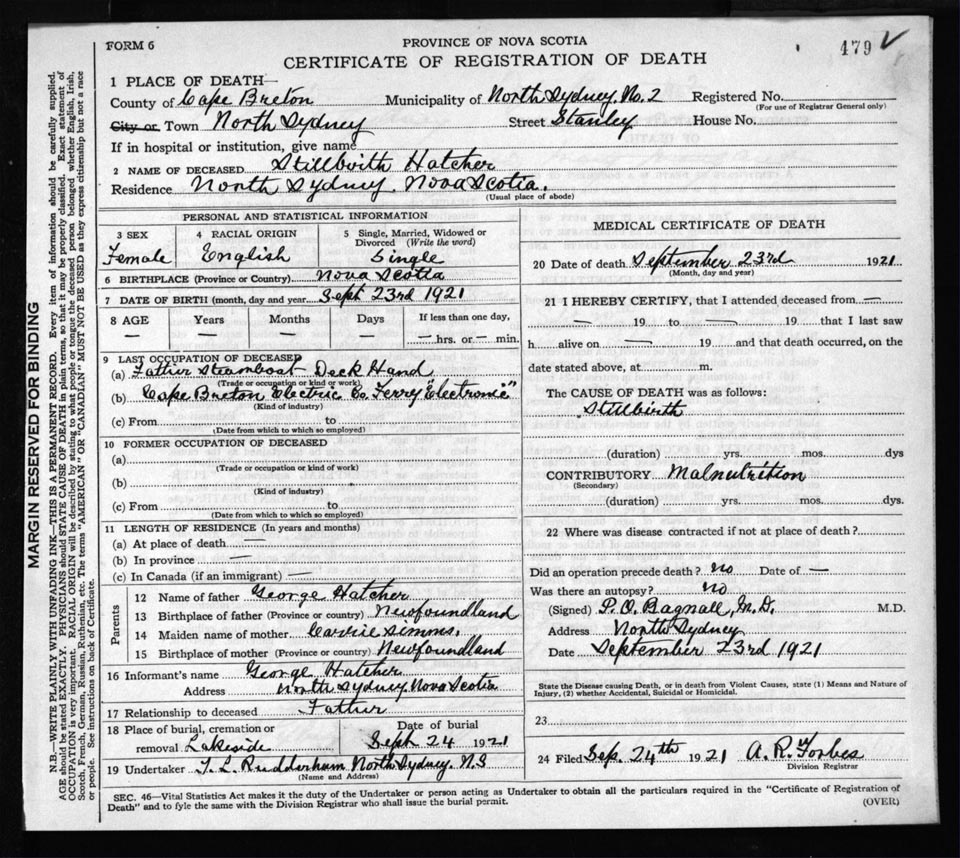 FORM 6
PROVINCE OF NOVA SCOTIA
479
CERTIFICATE OF REGISTRATION OF DEATH
1 PLACE OF DEATH—
County of Cape Breton Municipality of North Sydney, No. 2 Registered No.
(For use of Registrar General only)
City or Town North Sydney Street Stanley House No.
If in hospital or institution, give name
2 NAME OF DECEASED Stillbirth Hatcher
Residence North Sydney, Nova Scotia.
(Usual place of abode)
PERSONAL AND STATISTICAL INFORMATION
3 SEX
Female
4 RACIAL ORIGIN
English
5 Single, Married, Widowed or
Divorced (Write the word)
Single
6 BIRTHPLACE (Province or Country) Nova Scotia
7 DATE OF BIRTH (month, day and year Sept 23rd 1921
8 AGE Years Months Days If less than one day,
— — — — — hrs. or — min.
9 LAST OCCUPATION OF DECEASED
(a) Father Steamboat Deck Hand
(Trade or occupation or kind or work)
(b) Cape Breton Electric Co Ferry "Electronic"
(Kind of industry)
(c) From to
(Date from which to which so employed)
10 FORMER OCCUPATION OF DECEASED
(a)
(Trade or occupation or kind of work)
(b)
(Kind of industry)
(c) From to
(Date from which to which so employed)
11 LENGTH OF RESIDENCE (In years and months)
(a) At place of death —
(b) In province —
(c) In Canada (if an immigrant) —
Parents
12 Name of father George Hatcher
13 Birthplace of father (Province or country) Newfoundland
14 Maiden name of mother Carrie Simms.
15 Birthplace of mother (Province or country) Newfoundland
16 Informant's name George Hatcher
Address North Sydney, Nova Scotia
17 Relationship to deceased Father
18 Place of burial, cremation or
removal Lakeside
Date of burial
Sept 24 1921
19 Undertaker T. L. Rudderham North Sydney. N.S
(Name and Address)
MEDICAL CERTIFICATE OF DEATH
20 Date of death September 23rd 1921
(Month, day and year)
21 I HEREBY CERTIFY, that I attended deceased from —
— 19 to — 19 that I last saw
h alive on — 19 and that death occurred, on the
date stated above, at m.
The CAUSE OF DEATH was as follows:
Stillbirth
(duration) yrs. mos. dys
CONTRIBUTORY Malnutrition
(Secondary)
(duration) yrs. mos. dys.
22 Where was disease contracted if not at place of death?
Did an operation precede death? no Date of —
Was there an autopsy? no
(Signed) P.O. Bagnall, M.D. M.D.
Address North Sydney
Date September 23rd 1921
State the Disease causing Death, or in death from Violent Causes, state (1) Means and Nature of
Injury, (2) whether Accidental, Suicidal or Homicidal.
23
24 Filed Sep. 24th 1921 A. R. Forbes
Division Registrar
SEC. 46—Vital Statistics Act makes it the duty of the Undertaker or person acting as Undertaker to obtain all the particulars required in the "Certificate of Registration of
Death" and to fyle the same with the Division Registrar who shall issue the burial permit.
(OVER)
MARGIN RESERVED FOR BINDING
N.B.—WRITE PLAINLY WITH UNFADING INK—THIS IS A PERMANENT RECORD. Every item of information should be carefully supplied.
AGE should be stated EXACTLY. PHYSICIANS should STATE CAUSE OF DEATH in plain terms, so that it may be properly classified. Exact statement of
OCCUPATION is very important. RACIAL ORIGIN will be described by stating to what people or tongue the deceased person belonged whether English, Irish,
Scotch, French, German, Russian, Ruthenian, etc. The terms "AMERICAN" OR "CANADIAN" MUST NOT BE USED as they express citizenship but not a race
or people. See instructions on back of Certificate.